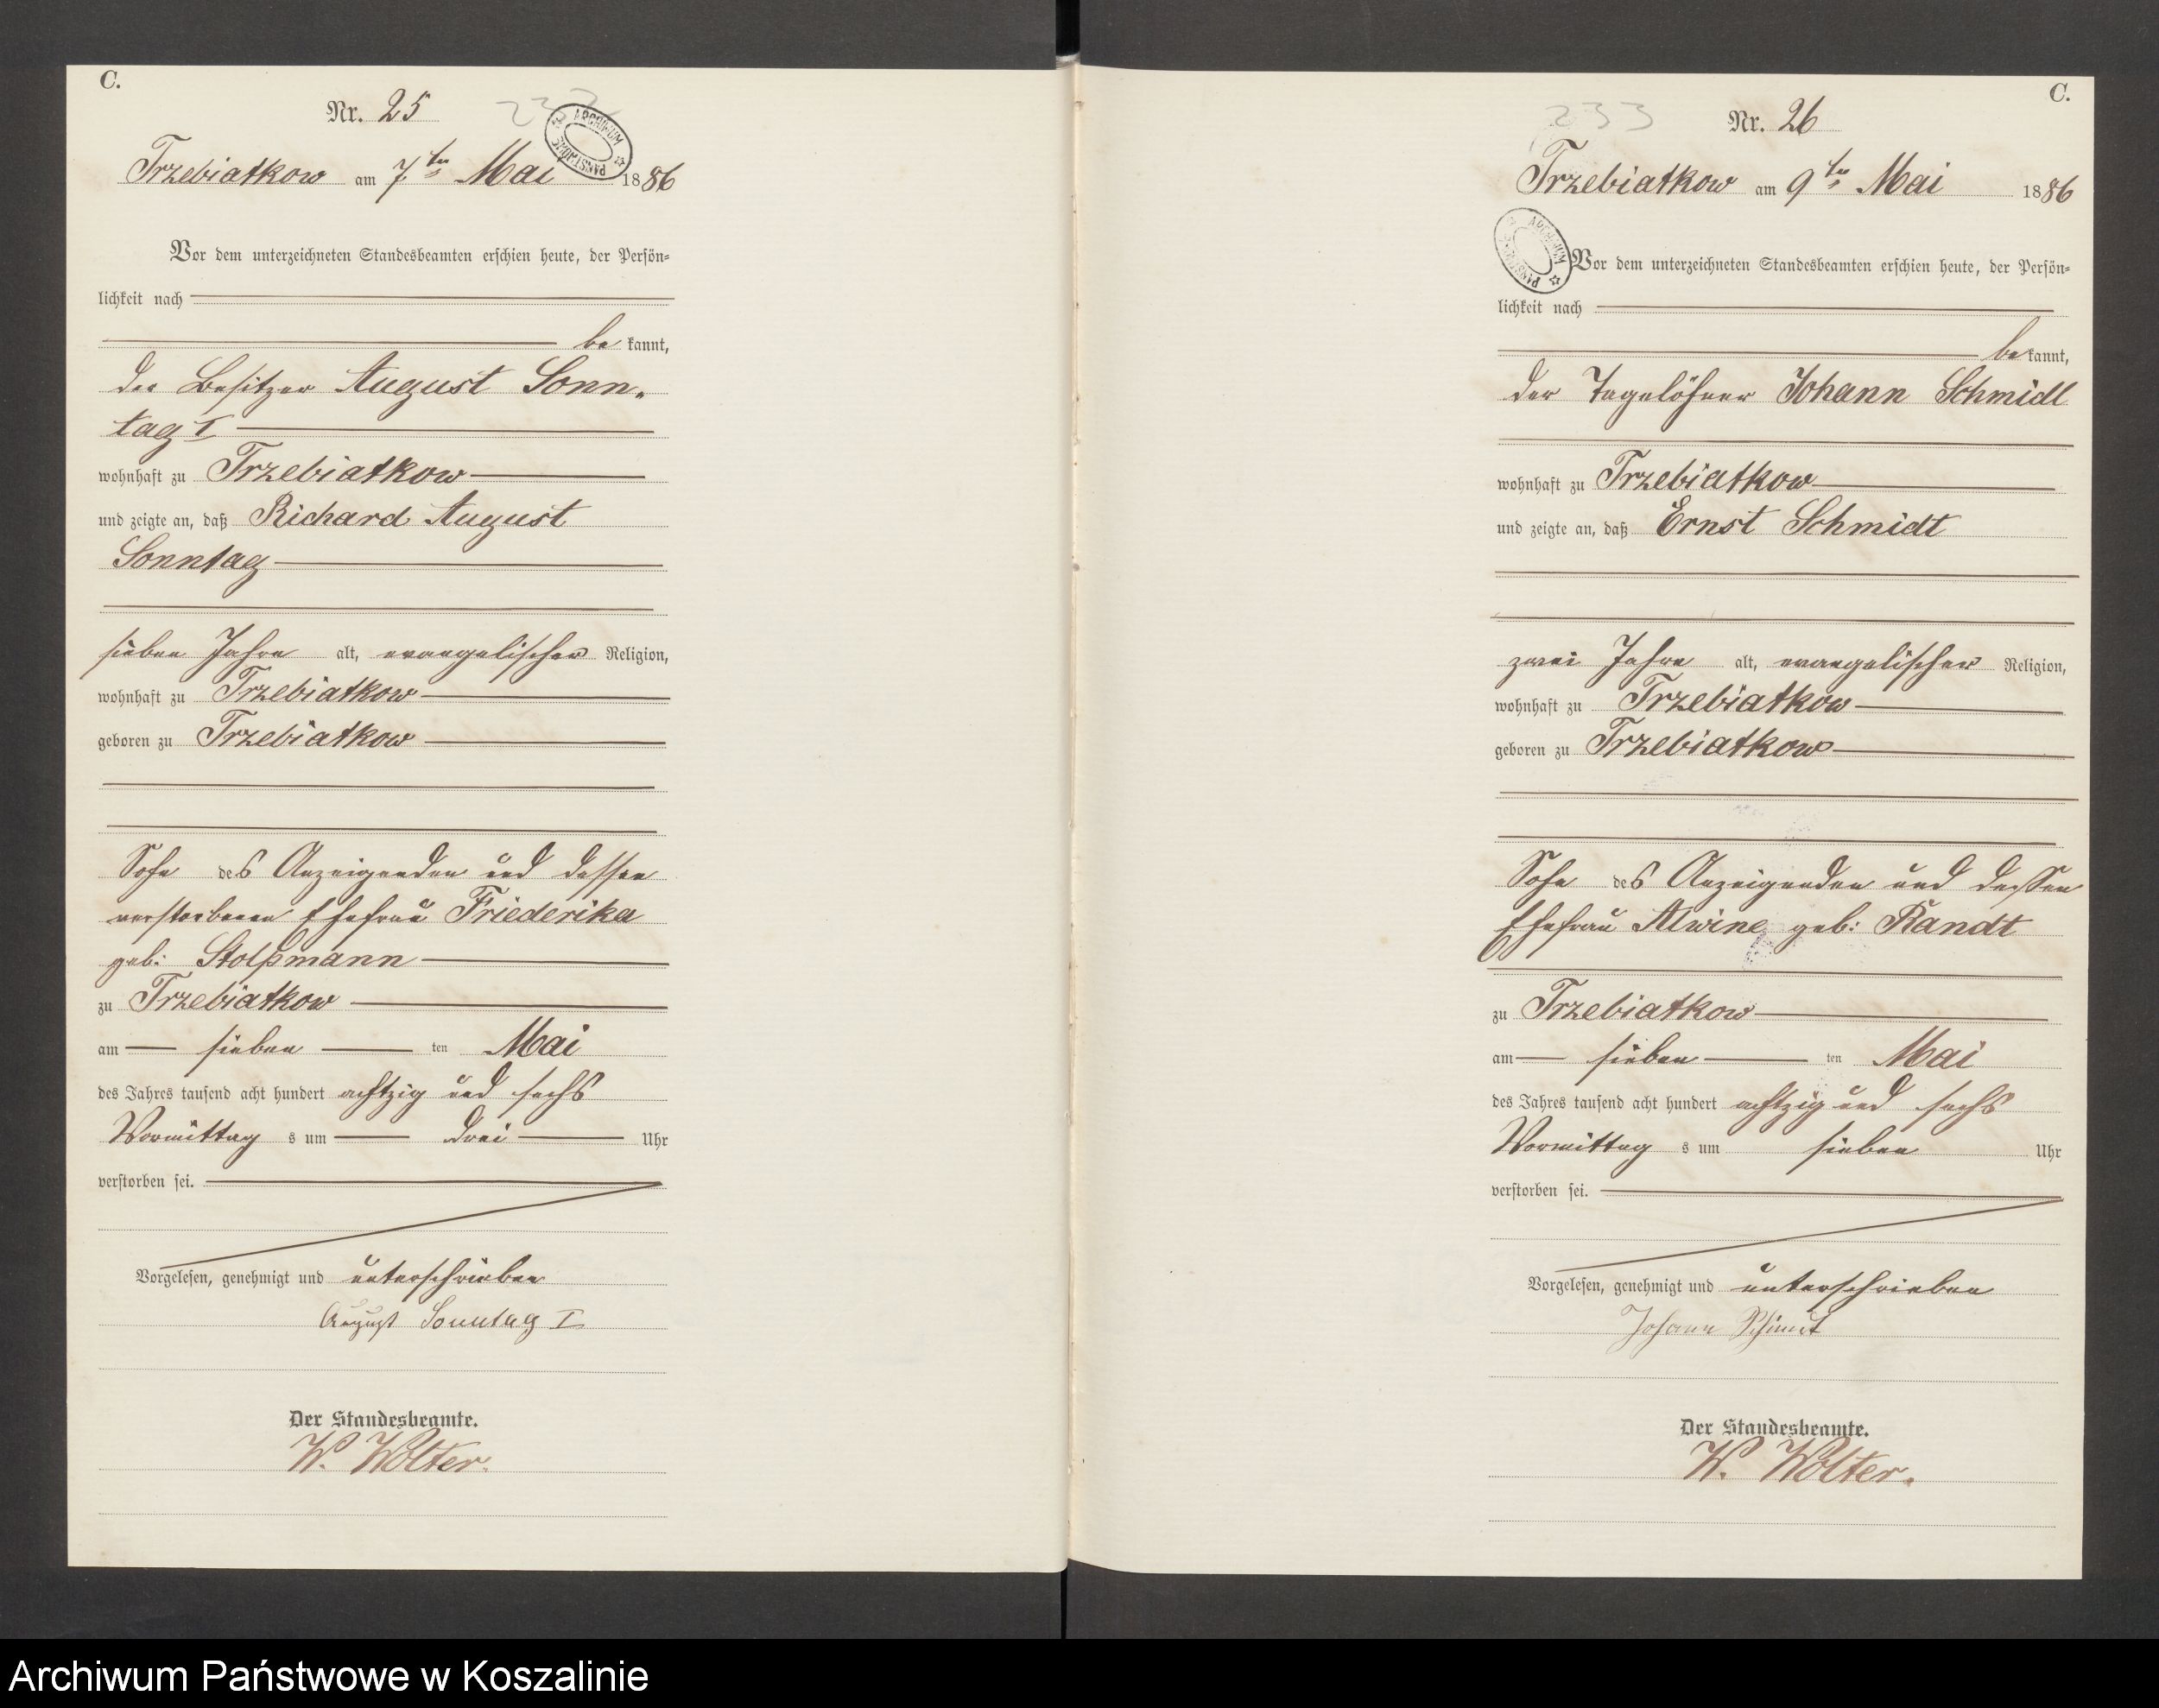 C.
Nr. 25
232
ARCHIWUM PAŃSTWOWE
Trzebiatkow am 7ten Mai 1886
Vor dem unterzeichneten Standesbeamten erschien heute, der Persön-
lichkeit nach
be kannt,
der Besitzer August Sonn-
tag I
wohnhaft zu Trzebiatkow
und zeigte an, daß Richard August
Sonntag
sieben Jahre alt, evangelischer Religion,
wohnhaft zu Trzebiatkow
geboren zu Trzebiatkow
Sohn des Anzeigenden und dessen
verstorbenen Ehefrau Friederika
geb: Stolpmann
zu Trzebiatkow
am sieben ten Mai
des Jahres tausend acht hundert achtzig und sechs
Vormittag s um drei Uhr
verstorben sei.
Vorgelesen, genehmigt und unterschrieben
August Sonntag I
Der Standesbeamte.
W. Wolter.
C.
233
Nr. 26
Trzebiatkow am 9ten Mai 1886
ARCHIWUM PAŃSTWOWE
Vor dem unterzeichneten Standesbeamten erschien heute, der Persön-
lichkeit nach
be kannt,
der Tagelöhner Johann Schmidt
wohnhaft zu Trzebiatkow
und zeigte an, daß Ernst Schmidt
zwei Jahre alt, evangelischer Religion,
wohnhaft zu Trzebiatkow
geboren zu Trzebiatkow
Sohn des Anzeigenden und dessen
Ehefrau Alwine geb: Randt
zu Trzebiatkow
am sieben ten Mai
des Jahres tausend acht hundert achtzig und sechs
Vormittag s um sieben Uhr
verstorben sei.
Vorgelesen, genehmigt und unterschrieben
Johann Schmidt
Der Standesbeamte.
W. Wolter.
Archiwum Państwowe w Koszalinie